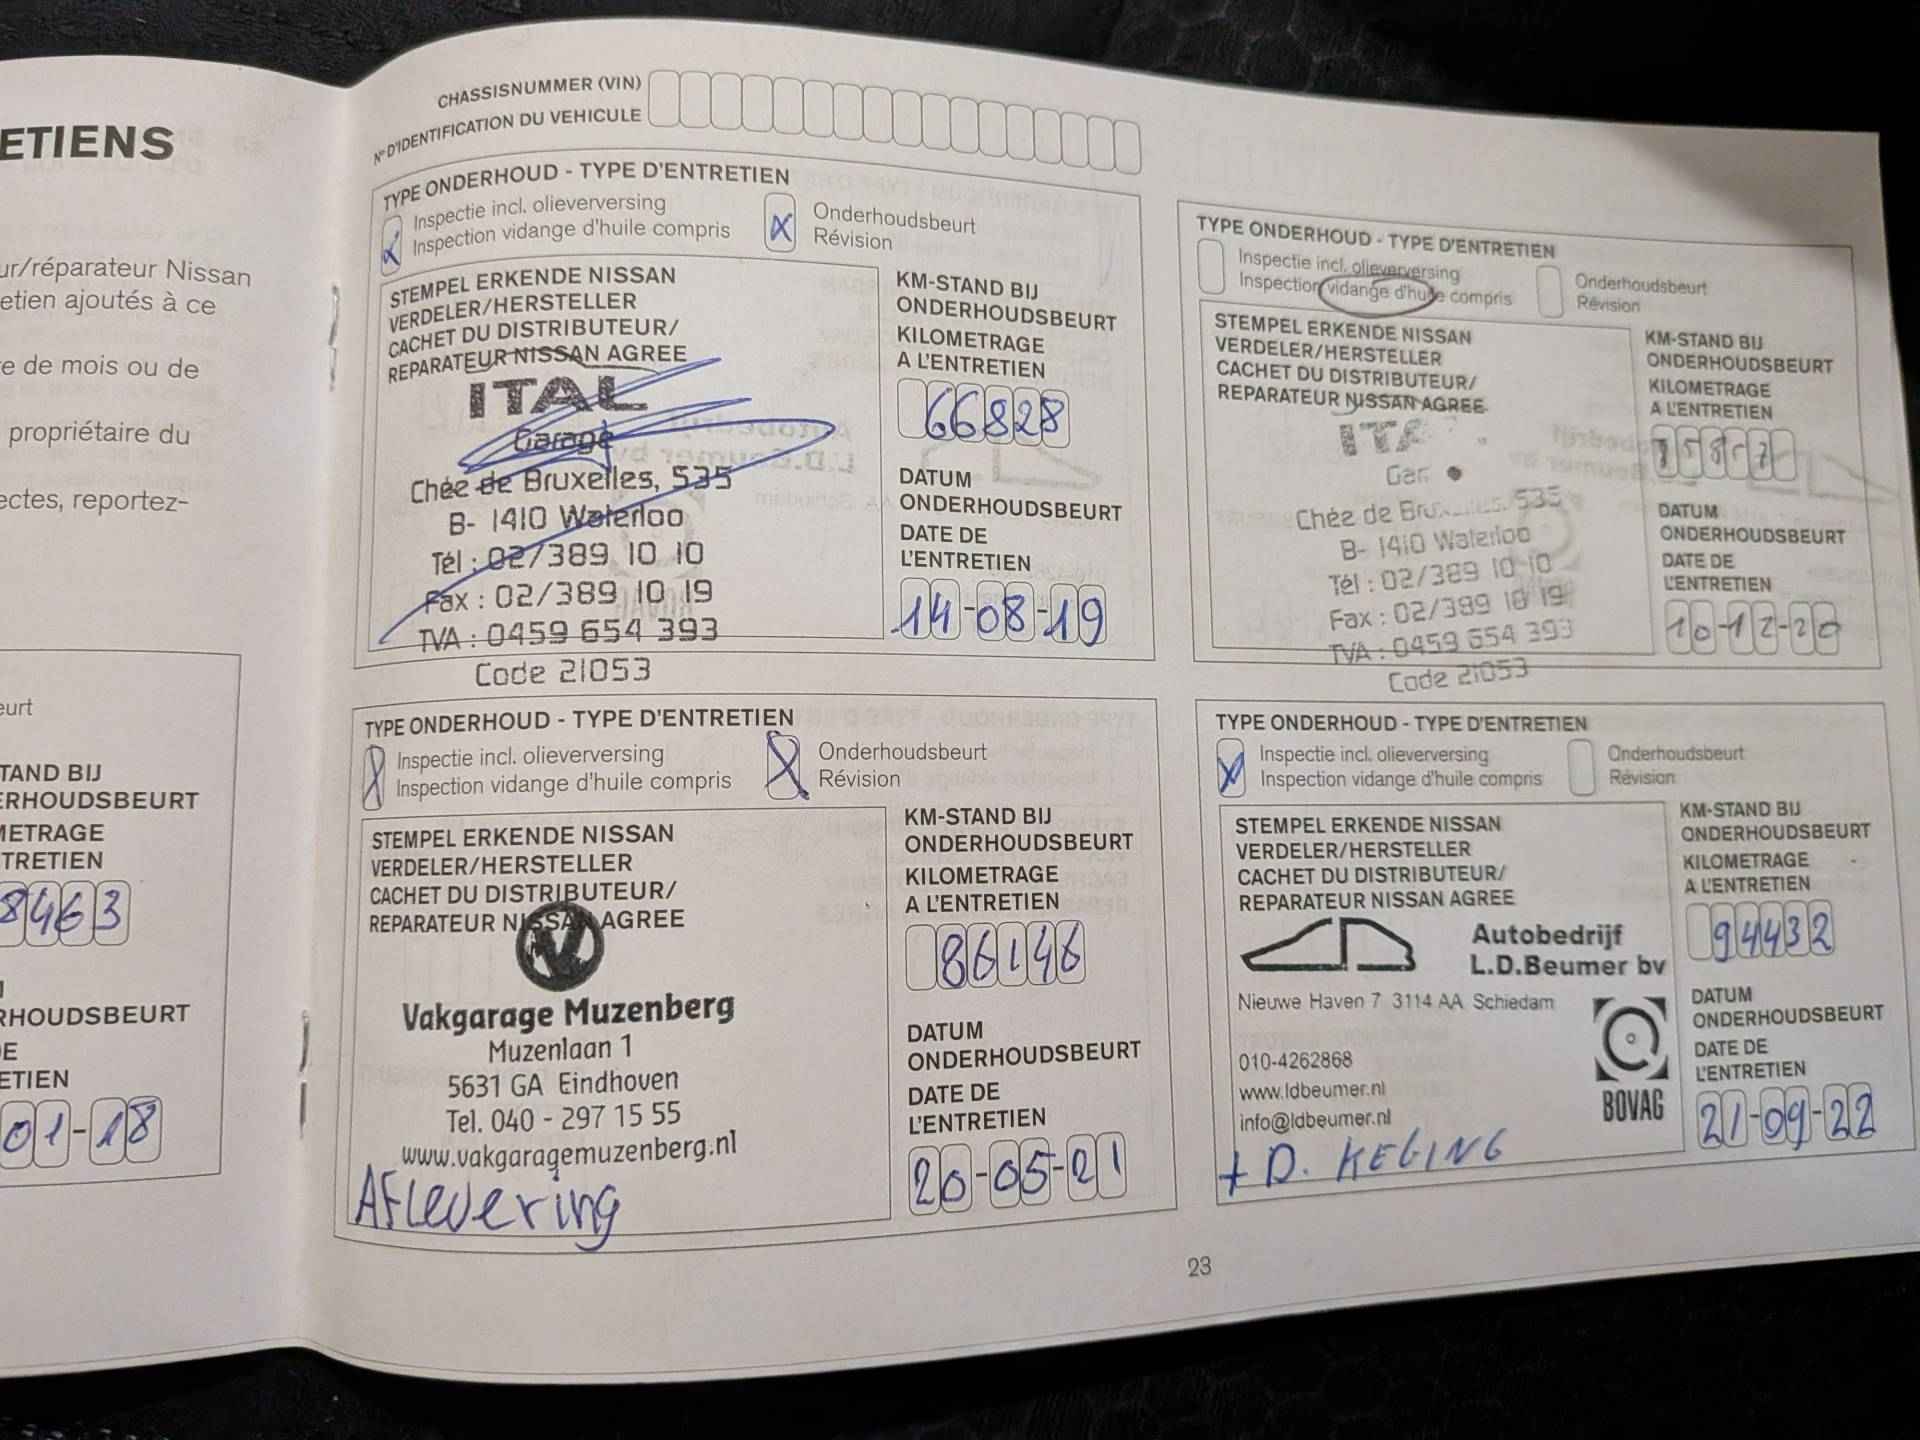 ETIENS
ur/réparateur Nissan
etien ajoutés à ce
e de mois ou de
propriétaire du
ectes, reportez-
eurt
TAND BIJ
ERHOUDSBEURT
METRAGE
TRETIEN
8463
RHOUDSBEURT
E
ETIEN
01-18
CHASSISNUMMER (VIN)
N° D'IDENTIFICATION DU VEHICULE
TYPE ONDERHOUD - TYPE D'ENTRETIEN
Inspectie incl. olieverversing
Inspection vidange d'huile compris
Onderhoudsbeurt
Révision
STEMPEL ERKENDE NISSAN
VERDELER/HERSTELLER
CACHET DU DISTRIBUTEUR/
REPARATEUR NISSAN AGREE
ITAL
Garage
Chée de Bruxelles, 535
B- 1410 Waterloo
Tél : 02/389 10 10
Fax : 02/389 10 19
TVA : 0459 654 393
Code 21053
KM-STAND BIJ
ONDERHOUDSBEURT
KILOMETRAGE
A L'ENTRETIEN
66828
DATUM
ONDERHOUDSBEURT
DATE DE
L'ENTRETIEN
14-08-19
TYPE ONDERHOUD - TYPE D'ENTRETIEN
Inspectie incl. olieverversing
Inspection vidange d'huile compris
Onderhoudsbeurt
Révision
STEMPEL ERKENDE NISSAN
VERDELER/HERSTELLER
CACHET DU DISTRIBUTEUR/
REPARATEUR NISSAN AGREE
Chée de 535
B- 1410 Waterloo
Tél : 02/389 10 10
Fax : 02/389 10 19
TVA : 0459 654 393
Code 21053
KM-STAND BIJ
ONDERHOUDSBEURT
KILOMETRAGE
A L'ENTRETIEN
DATUM
ONDERHOUDSBEURT
DATE DE
L'ENTRETIEN
10-12-20
TYPE ONDERHOUD - TYPE D'ENTRETIEN
Inspectie incl. olieverversing
Inspection vidange d'huile compris
Onderhoudsbeurt
Révision
STEMPEL ERKENDE NISSAN
VERDELER/HERSTELLER
CACHET DU DISTRIBUTEUR/
REPARATEUR NISSAN AGREE
Vakgarage Muzenberg
Muzenlaan 1
5631 GA Eindhoven
Tel. 040 - 297 15 55
www.vakgaragemuzenberg.nl
Aflevering
KM-STAND BIJ
ONDERHOUDSBEURT
KILOMETRAGE
A L'ENTRETIEN
86146
DATUM
ONDERHOUDSBEURT
DATE DE
L'ENTRETIEN
20-05-21
TYPE ONDERHOUD - TYPE D'ENTRETIEN
Inspectie incl. olieverversing
Inspection vidange d'huile compris
Onderhoudsbeurt
Révision
STEMPEL ERKENDE NISSAN
VERDELER/HERSTELLER
CACHET DU DISTRIBUTEUR/
REPARATEUR NISSAN AGREE
Autobedrijf
L.D.Beumer bv
Nieuwe Haven 7 3114 AA Schiedam
010-4262868
www.ldbeumer.nl
info@ldbeumer.nl
BOVAG
+ D. KEGING
KM-STAND BIJ
ONDERHOUDSBEURT
KILOMETRAGE
A L'ENTRETIEN
94432
DATUM
ONDERHOUDSBEURT
DATE DE
L'ENTRETIEN
21-09-22
23